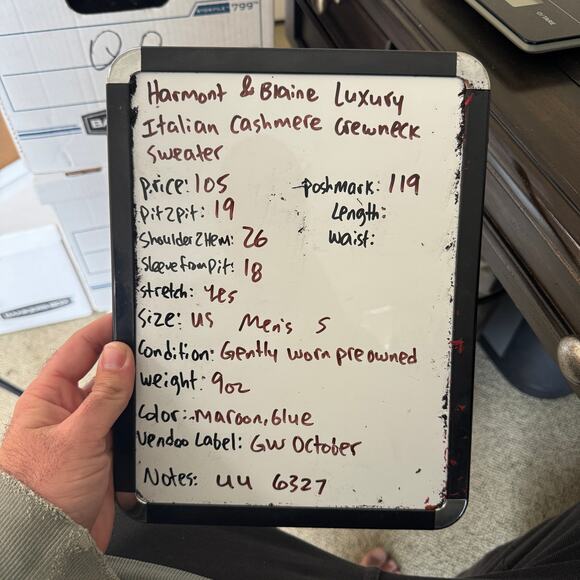 799
Harmont & Blaine Luxury
Italian Cashmere Crewneck
Sweater
price: 105
poshmark: 119
pit2pit: 19
Length:
Shoulder2Hem: 26
Waist:
Sleevefrompit: 18
stretch: yes
Size: US Men's S
Condition: Gently worn preowned
weight: 9oz
Color: maroon, blue
Vendoo Label: GW October
Notes: UU 6327